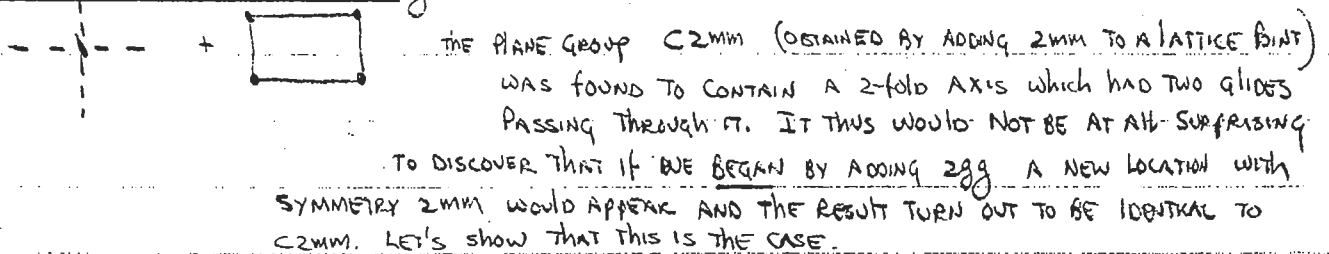 + THE PLANE GROUP C2MM (OBTAINED BY ADDING 2MM TO A LATTICE POINT)
WAS FOUND TO CONTAIN A 2-FOLD AXIS WHICH HAD TWO GLIDES
PASSING THROUGH IT. IT THUS WOULD NOT BE AT ALL SURPRISING
TO DISCOVER THAT IF WE BEGAN BY ADDING 2gg A NEW LOCATION WITH
SYMMETRY 2MM WOULD APPEAR AND THE RESULT TURN OUT TO BE IDENTICAL TO
C2MM. LET'S SHOW THAT THIS IS THE CASE.